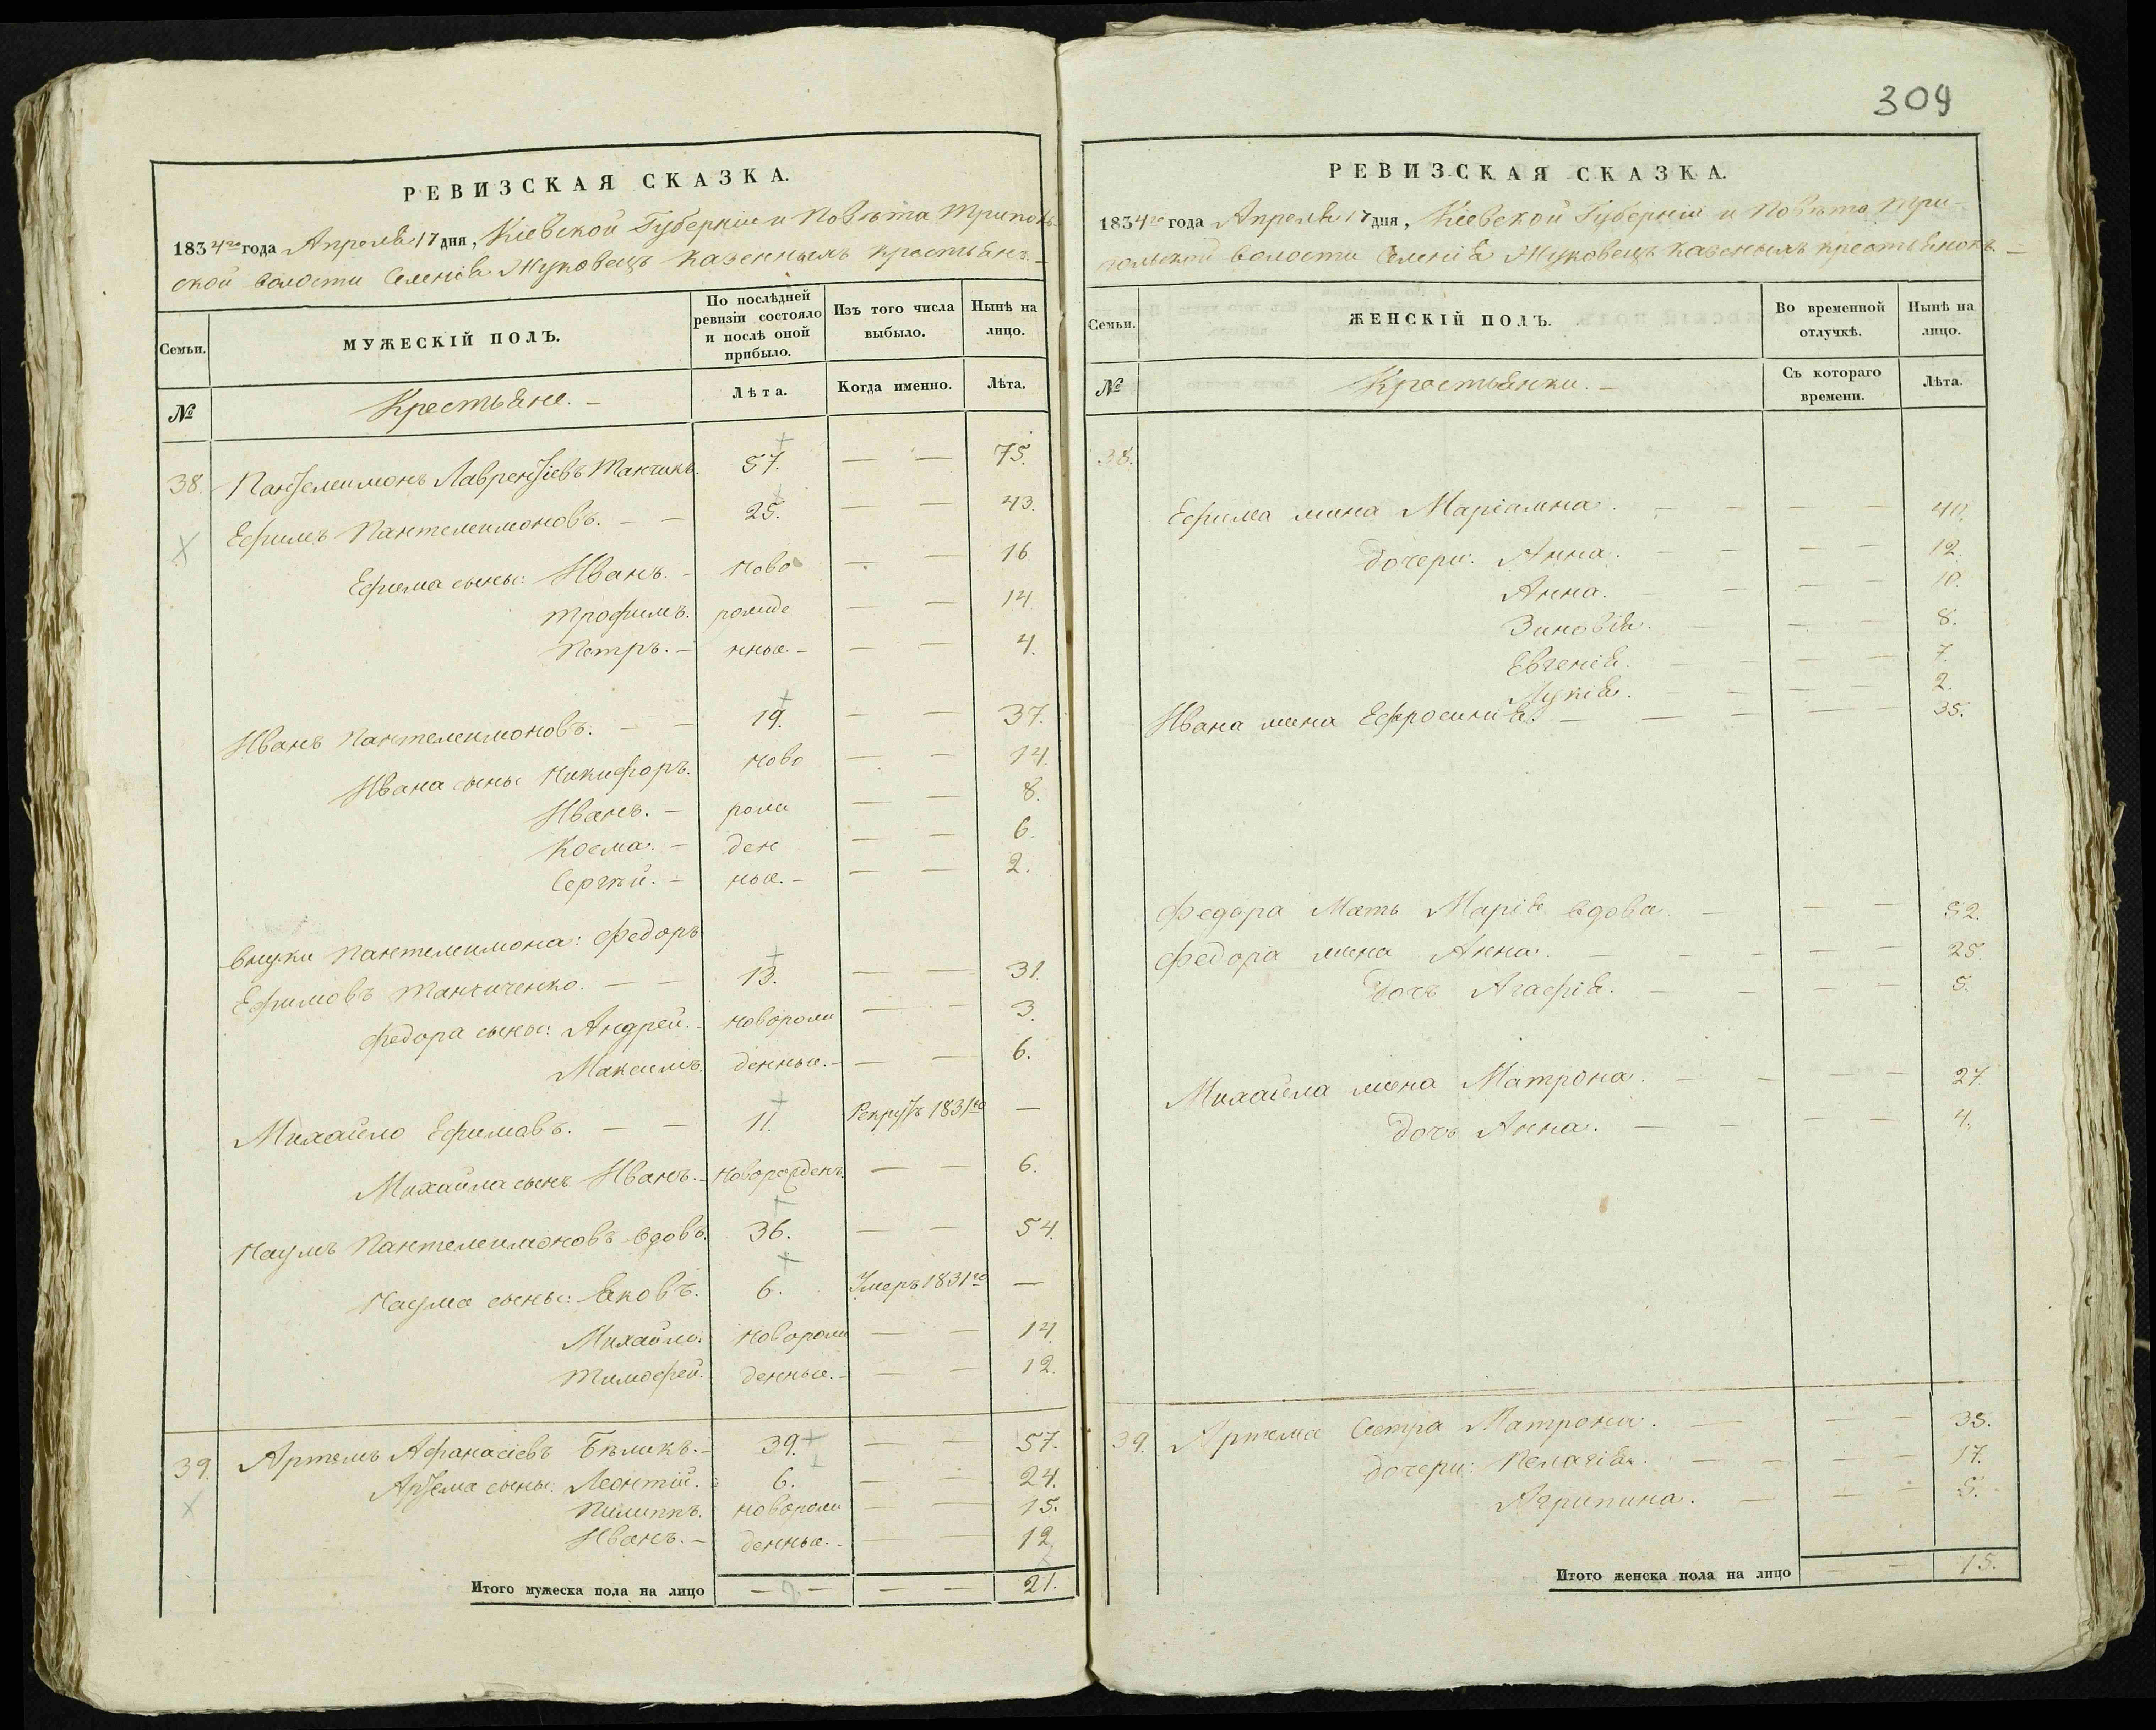 РЕВИЗСКАЯ СКАЗКА.
1834го года Апреля 17 дня, Кіевской Губерніи и Повѣта Триполь-
ской волости Селенія Жуковецъ казенныхъ крестьянъ. –
Семьи. МУЖЕСКІЙ ПОЛЪ. По послѣдней ревизіи состояло и послѣ оной прибыло. Изъ того числа выбыло. Нынѣ на лицо.
№ Крестьяне. – Лѣта. Когда именно. Лѣта.
38. Пантелеимонъ Лаврентіевъ Танчикъ. 57. — — 75.
Ефимъ Пантелеимоновъ. — — 25. — — 43.
Ефима сыны: Иванъ. – ново — — 16
Трофимъ. рожде — — 14.
Петръ. – нные. – — — 4.
Иванъ Пантелеимоновъ. — — 19. — — 37.
Ивана сыны Никифоръ. ново — — 14.
Иванъ. – рож — — 8.
Косма. – ден — — 6.
Сергѣй. – ные. – — — 2.
внуки Пантелеимона: Федоръ
Ефимовъ Танчиченко. — — 13. — — 31.
Федора сыны: Андрей. – новорож — — 3.
Максимъ. денные. – — — 6.
Михайло Ефимовъ. — — 11. Рекрутъ 1831го —
Михайла сынъ Иванъ. – новорожденъ. — — 6.
Наумъ Пантелеимоновъ вдовъ. 36. — — 54.
Наума сыны: Яковъ. 6. Умеръ 1831го —
Михайло. новорож — — 14.
Тимофей. денные. – — — 12.
39. Артемъ Афанасіевъ Бѣликъ. – 39. — — 57.
Артема сыны: Леонтій. 6. — — 24.
Пилиппъ. новорож — — 15.
Иванъ. – денные. – — — 12.
Итого мужеска пола на лицо — — — — 21.
309
РЕВИЗСКАЯ СКАЗКА.
1834го года Апреля 17 дня, Кіевской Губерніи и Повѣта Три-
польской волости Селенія Жуковецъ казенныхъ крестьянокъ. –
Семьи. ЖЕНСКІЙ ПОЛЪ. Во временной отлучкѣ. Нынѣ на лицо.
№ Крестьянки. – Съ котораго времени. Лѣта.
38.
Ефима жена Маріамна. — — — — 40.
дочери: Анна. — — — — 12.
Анна. — — — — 10.
Зиновія. — — — 8.
Евгенія. — — — — 7.
Лукія. — — — — 2.
Ивана жена Ефросинія. — — — — 35.
Федора Мать Марія вдова — — — 52.
Федора жена Анна. — — — — 25.
дочь Агафія. — — — — 5.
Михайла жена Матрона. — — — — 27.
дочь Анна. — — — — 4.
39. Артема Сестра Матрона. — — — 35.
дочери: Пелагія. — — — — 17.
Агрипина. — — — 5.
Итого женска пола на лицо — — 15.